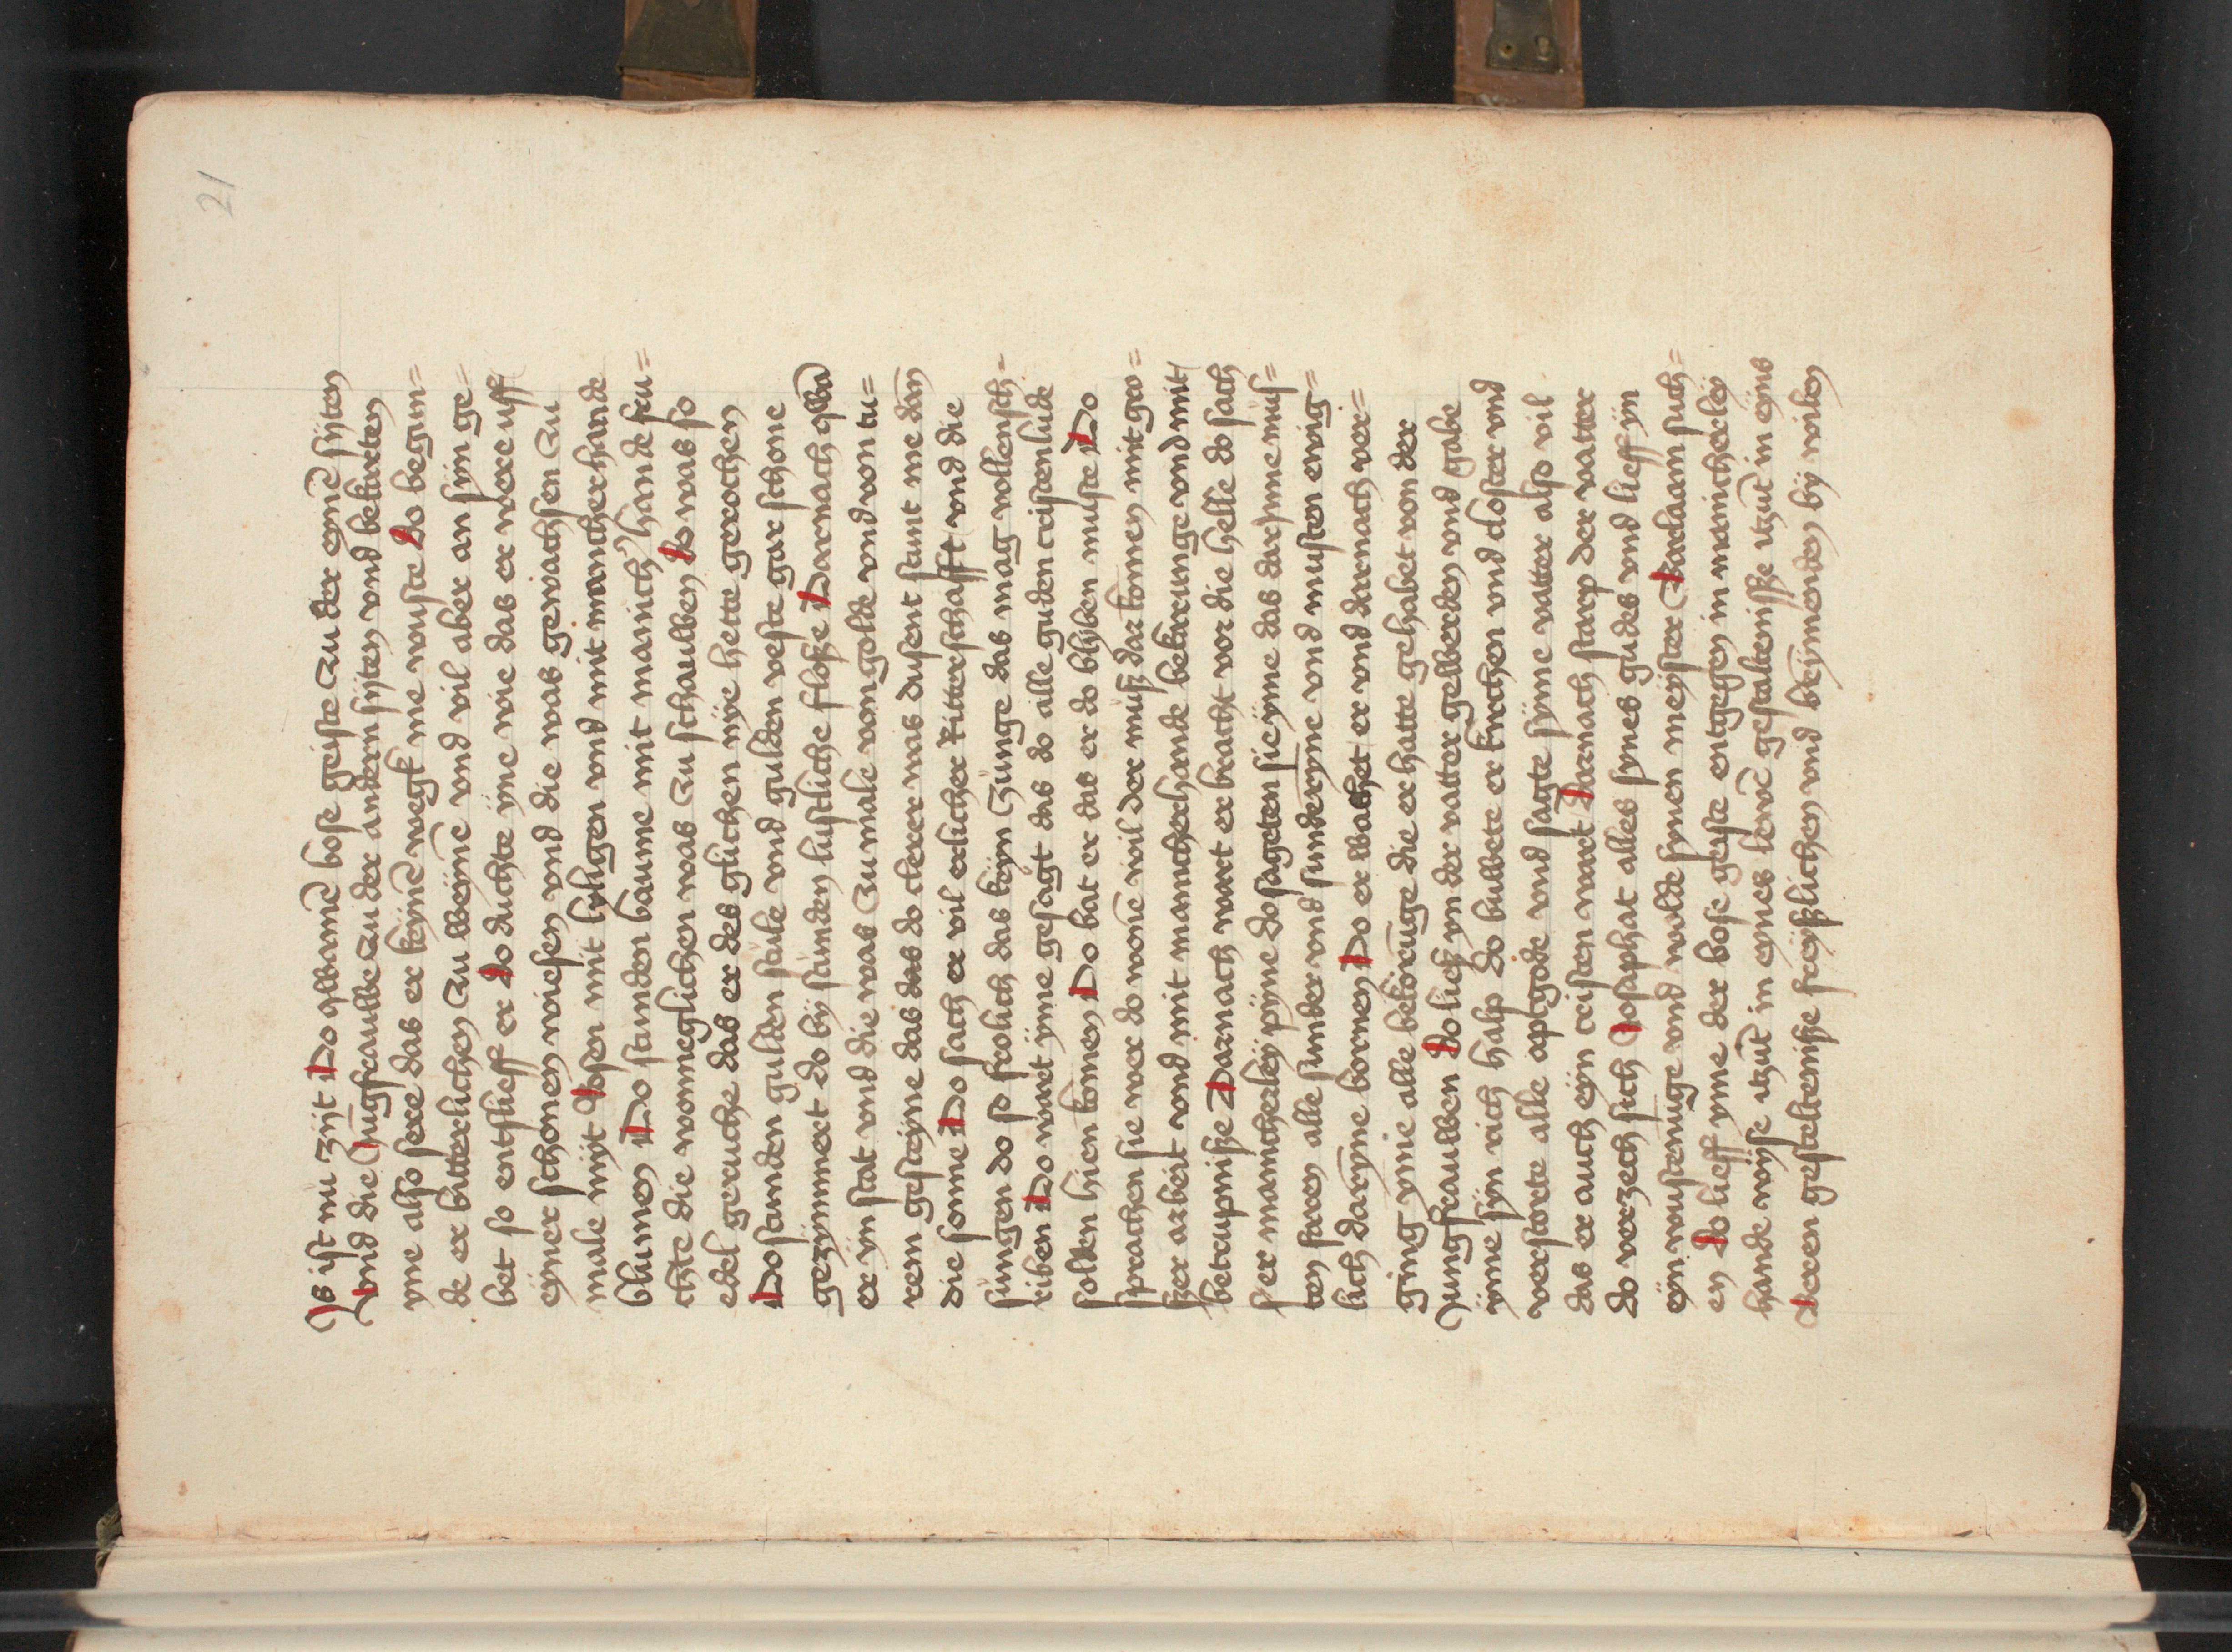 21
Js ist nü zijt Do qwamẽ bose geiste zu der eynẽ sijten
vnd die Jũgfrauwe zu der andern sijten vnd bekarten
yme also sere das er keynẽ wegk me wuste Do begun=
de er bitterlichen zu weynẽ vnd vil aber an sijn ge=
bet so entslieff er Do duchte yne wie das er were uff
eyner schonen wiesen vnd die was gewachsen zu
male mijt Rosen mit lyligen vnd mit mancherhande
blumen Do stunden baume mit manich' hande fru=
chte die wonneglichen was zu schauwen Do was so
edel geruche das er des glichen nye hette gerochen
Do stunden gulden stüle vnd gulden veste gar schone
gezymmert do bij stunden lustliche floße Darnach qwã
er yn stat vnd die was zu male von golde vnd von tu=
rem gesteyne das das do clerer was dusent stunt me dan
die sonne Do sach er vil erlicher Ritterschafft vnd die
süngen do so frolich das keyn zünge das mag vollensch=
riben Do wart yme gesagt das do alle guden cristenlude
solden hien komen Do bat er das er do bliben muste Do
sprachen sie wer do wonẽ wil der müß dar komen mit gro=
ßer arbeit vnd mit mancherhande bekarunge vnd mit
betrupniße Darnach wart er bracht vor die helle do sach
er mancherley pyne do sageten sie yme das dar jnne müs=
ten faren alle sunder vnd sunderyne vnd musten ewig=
lich darynne bornen Do erwachet er vnd darnach ver=
ging yme alle bekorũge die er hatte gehabet von der
Jungfrauwen Do ließ yn der vatter gewerden vnd gabe
yme sijn rich halp Do buwete er kirchen vnd closter vnd
verstorte alle aptgode vnd sagte syme vatter also vil
das er auch eyn cristen wart Darnach starp der vatter
do verzech sich Josaphat alles synes gudes vnd lieff yn
eyn wustenuge vnd wolde synen meyster Barlaam such=
en Do lieff yme der bose geiste entgegen in mancherley
hande wyse itzũt in eynes lewẽ gestalteniße itzũt in eyns
beren gestelteniße freyßlichen vnd brymenden bij wilen